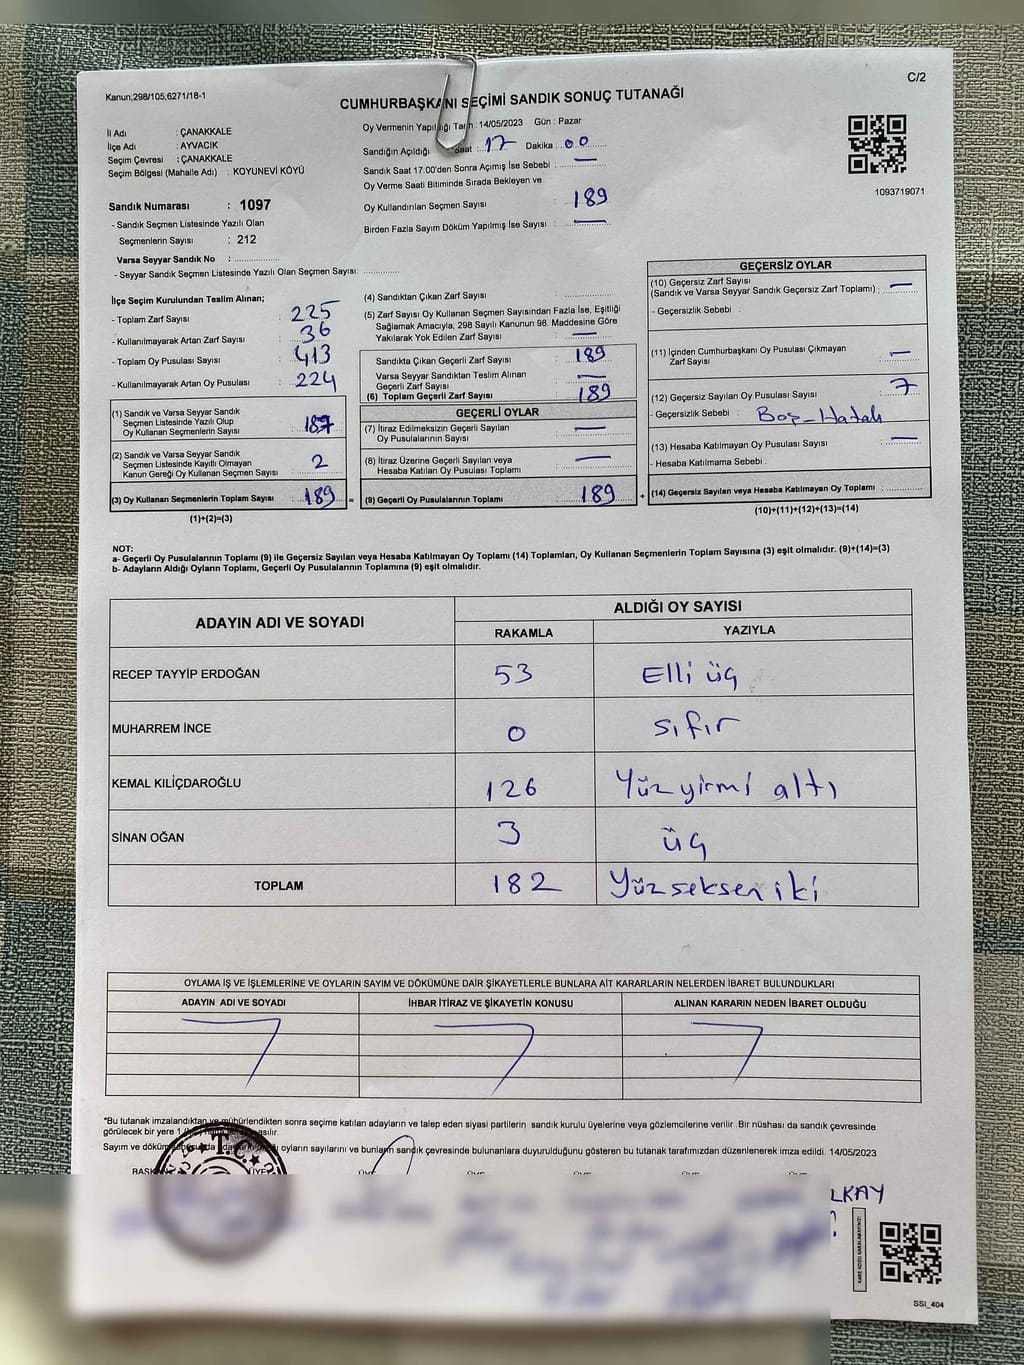 Kanun;298/105,6271/18-1
C/2
CUMHURBAŞKANI SEÇİMİ SANDIK SONUÇ TUTANAĞI
İl Adı : ÇANAKKALE
İlçe Adı : AYVACIK
Seçim Çevresi : ÇANAKKALE
Seçim Bölgesi (Mahalle Adı) : KOYUNEVİ KÖYÜ
Sandık Numarası : 1097
- Sandık Seçmen Listesinde Yazılı Olan
Seçmenlerin Sayısı : 212
Varsa Seyyar Sandık No :
- Seyyar Sandık Listesinde Yazılı Olan Seçmen Sayısı:
Oy Vermenin Yapıldığı Tarih :14/05/2023 Gün : Pazar
Sandığın Açıldığı Saat : 17 Dakika : 00
Sandık Saat 17.00'den Sonra Açımış İse Sebebi : —
Oy Verme Saati Bitiminde Sırada Bekleyen ve
Oy Kullandırılan Seçmen Sayısı : 189
Birden Fazla Sayım Döküm Yapılmış İse Sayısı : —
1093719071
İlçe Seçim Kurulundan Teslim Alınan;
- Toplam Zarf Sayısı : 225
- Kullanılmayarak Artan Zarf Sayısı : 36
- Toplam Oy Pusulası Sayısı : 413
- Kullanılmayarak Artan Oy Pusulası : 224
(1) Sandık ve Varsa Seyyar Sandık
Seçmen Listesinde Yazılı Olup
Oy Kullanan Seçmenlerin Sayısı : 187
(2) Sandık ve Varsa Seyyar Sandık
Seçmen Listesinde Kayıtlı Olmayan
Kanun Gereği Oy Kullanan Seçmen Sayısı : 2
(3) Oy Kullanan Seçmenlerin Toplam Sayısı : 189 =
(1)+(2)=(3)
(4) Sandıktan Çıkan Zarf Sayısı :
(5) Zarf Sayısı Oy Kullanan Seçmen Sayısından Fazla İse, Eşitliği
Sağlamak Amacıyla, 298 Sayılı Kanunun 98. Maddesine Göre
Yakılarak Yok Edilen Zarf Sayısı : —
Sandıkta Çıkan Geçerli Zarf Sayısı : 189
Varsa Seyyar Sandıktan Teslim Alınan
Geçerli Zarf Sayısı : —
(6) Toplam Geçerli Zarf Sayısı : 189
GEÇERLİ OYLAR
(7) İtiraz Edilmeksizin Geçerli Sayılan
Oy Pusulalarının Sayısı : —
(8) İtiraz Üzerine Geçerli Sayılan veya
Hesaba Katılan Oy Pusulası Toplamı : —
(9) Geçerli Oy Pusulalarının Toplamı : 189 +
GEÇERSİZ OYLAR
(10) Geçersiz Zarf Sayısı
(Sandık ve Varsa Seyyar Sandık Geçersiz Zarf Toplamı) : —
- Geçersizlik Sebebi :
(11) İçinden Cumhurbaşkanı Oy Pusulası Çıkmayan
Zarf Sayısı : —
(12) Geçersiz Sayılan Oy Pusulası Sayısı : 7
- Geçersizlik Sebebi : Boş-Hatalı
(13) Hesaba Katılmayan Oy Pusulası Sayısı : —
- Hesaba Katılmama Sebebi :
(14) Geçersiz Sayılan veya Hesaba Katılmayan Oy Toplamı :
(10)+(11)+(12)+(13)=(14)
NOT:
a- Geçerli Oy Pusulalarının Toplamı (9) ile Geçersiz Sayılan veya Hesaba Katılmayan Oy Toplamı (14) Toplamları, Oy Kullanan Seçmenlerin Toplam Sayısına (3) eşit olmalıdır. (9)+(14)=(3)
b- Adayların Aldığı Oyların Toplamı, Geçerli Oy Pusulalarının Toplamına (9) eşit olmalıdır.
ADAYIN ADI VE SOYADI
ALDIĞI OY SAYISI
RAKAMLA YAZIYLA
RECEP TAYYİP ERDOĞAN 53 Elli üç
MUHARREM İNCE 0 sıfır
KEMAL KILIÇDAROĞLU 126 Yüzyirmi altı
SİNAN OĞAN 3 üç
TOPLAM 182 Yüzseksen iki
OYLAMA İŞ VE İŞLEMLERİNE VE OYLARIN SAYIM VE DÖKÜMÜNE DAİR ŞİKAYETLERLE BUNLARA AİT KARARLARIN NELERDEN İBARET BULUNDUKLARI
ADAYIN ADI VE SOYADI İHBAR İTİRAZ VE ŞİKAYETİN KONUSU ALINAN KARARIN NEDEN İBARET OLDUĞU
*Bu tutanak imzalandıktan ve mühürlendikten sonra seçime katılan adayların ve talep eden siyasi partilerin sandık kurulu üyelerine veya gözlemcilerine verilir .Bir nüshası da sandık çevresinde
görülecek bir yere asılır.
Sayım ve döküm oyların sayılarını ve bunların sandık çevresinde bulunanlara duyurulduğunu gösteren bu tutanak tarafımızdan düzenlenerek imza edildi. 14/05/2023
T.C.
LKAY
SSI_404